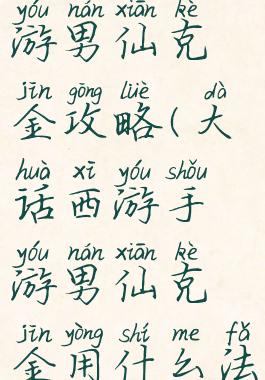 yóu nán xiān kè
游男仙克
jīn gōng lüè dà
金攻略(大
huà xī yóu shǒu
话西游手
yóu nán xiān kè
游男仙克
jīn yòng shí me fǎ
金用什么法